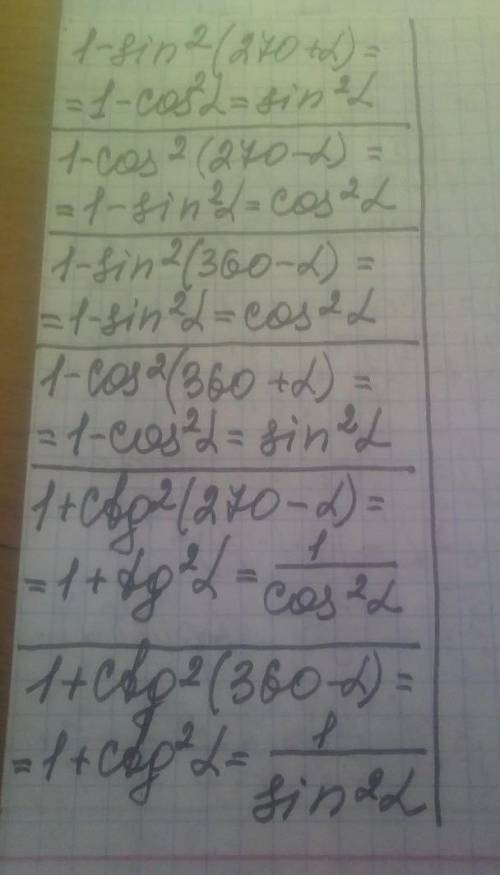 1-sin²(270+α)=
=1-cos²α=sin²α
1-cos²(270-α)=
=1-sin²α=cos²α
1-sin²(360-α)=
=1-sin²α=cos²α
1-cos²(360+α)=
=1-cos²α=sin²α
1+ctg²(270-α)=
=1+tg²α=1/cos²α
1+ctg²(360-α)=
=1+ctg²α=1/sin²α